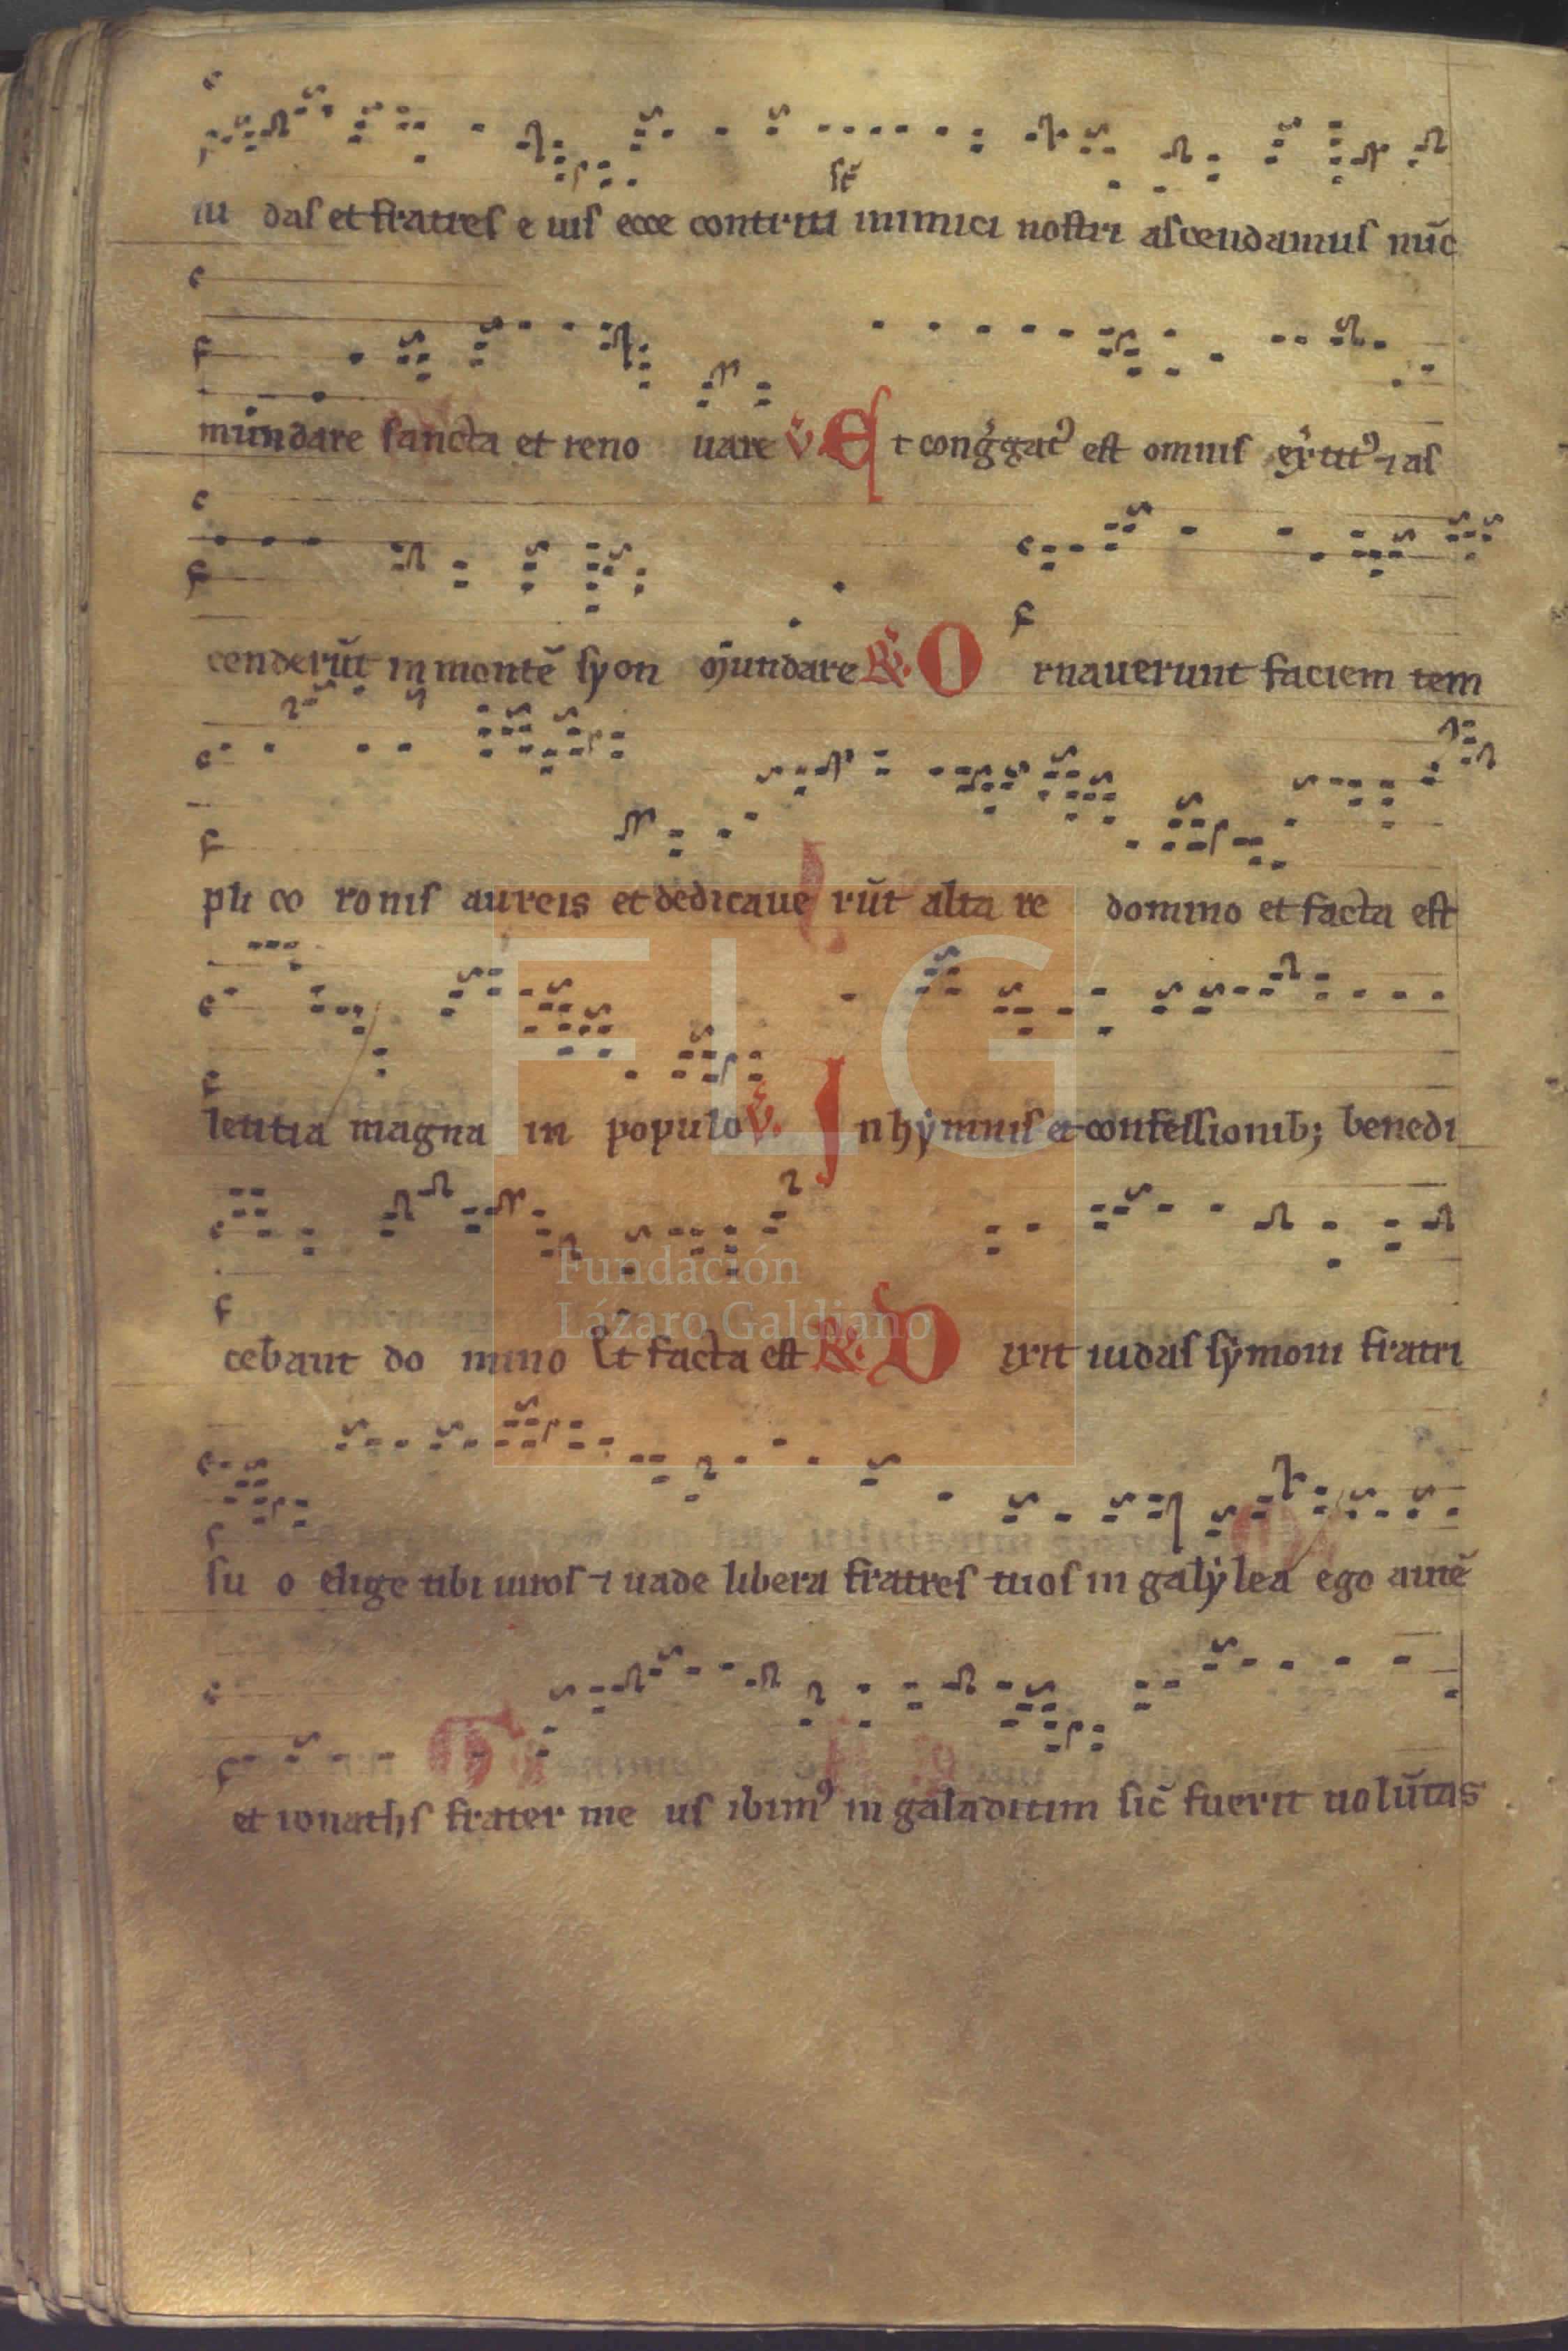 st̄
iu das et fratres e ius ecce contriti inimici nostri ascendamus nūc
mundare sancta et reno uare v̄. Et congͥgatꝰ est omnis exͥcitꝰ ⁊ as
cenderūt in montē syon Mundare R̄. Ornauerunt faciem tem
pli co ronis aureis et dedicaue rūt alta re domino et facta est
letitia magna in populo v̄. In hẏmnis et confessionib; benedi
cebant do mino Et facta est R̄. Dixit iudas sẏmoni fratri
su o elige tibi uiros ⁊ uade libera fratres tuos in galẏlea ego autē
et ionaths frater me us ibimꝰ in galaditim sic̄ fuerit uolūtas
FLG
Fundación
Lázaro Galdiano